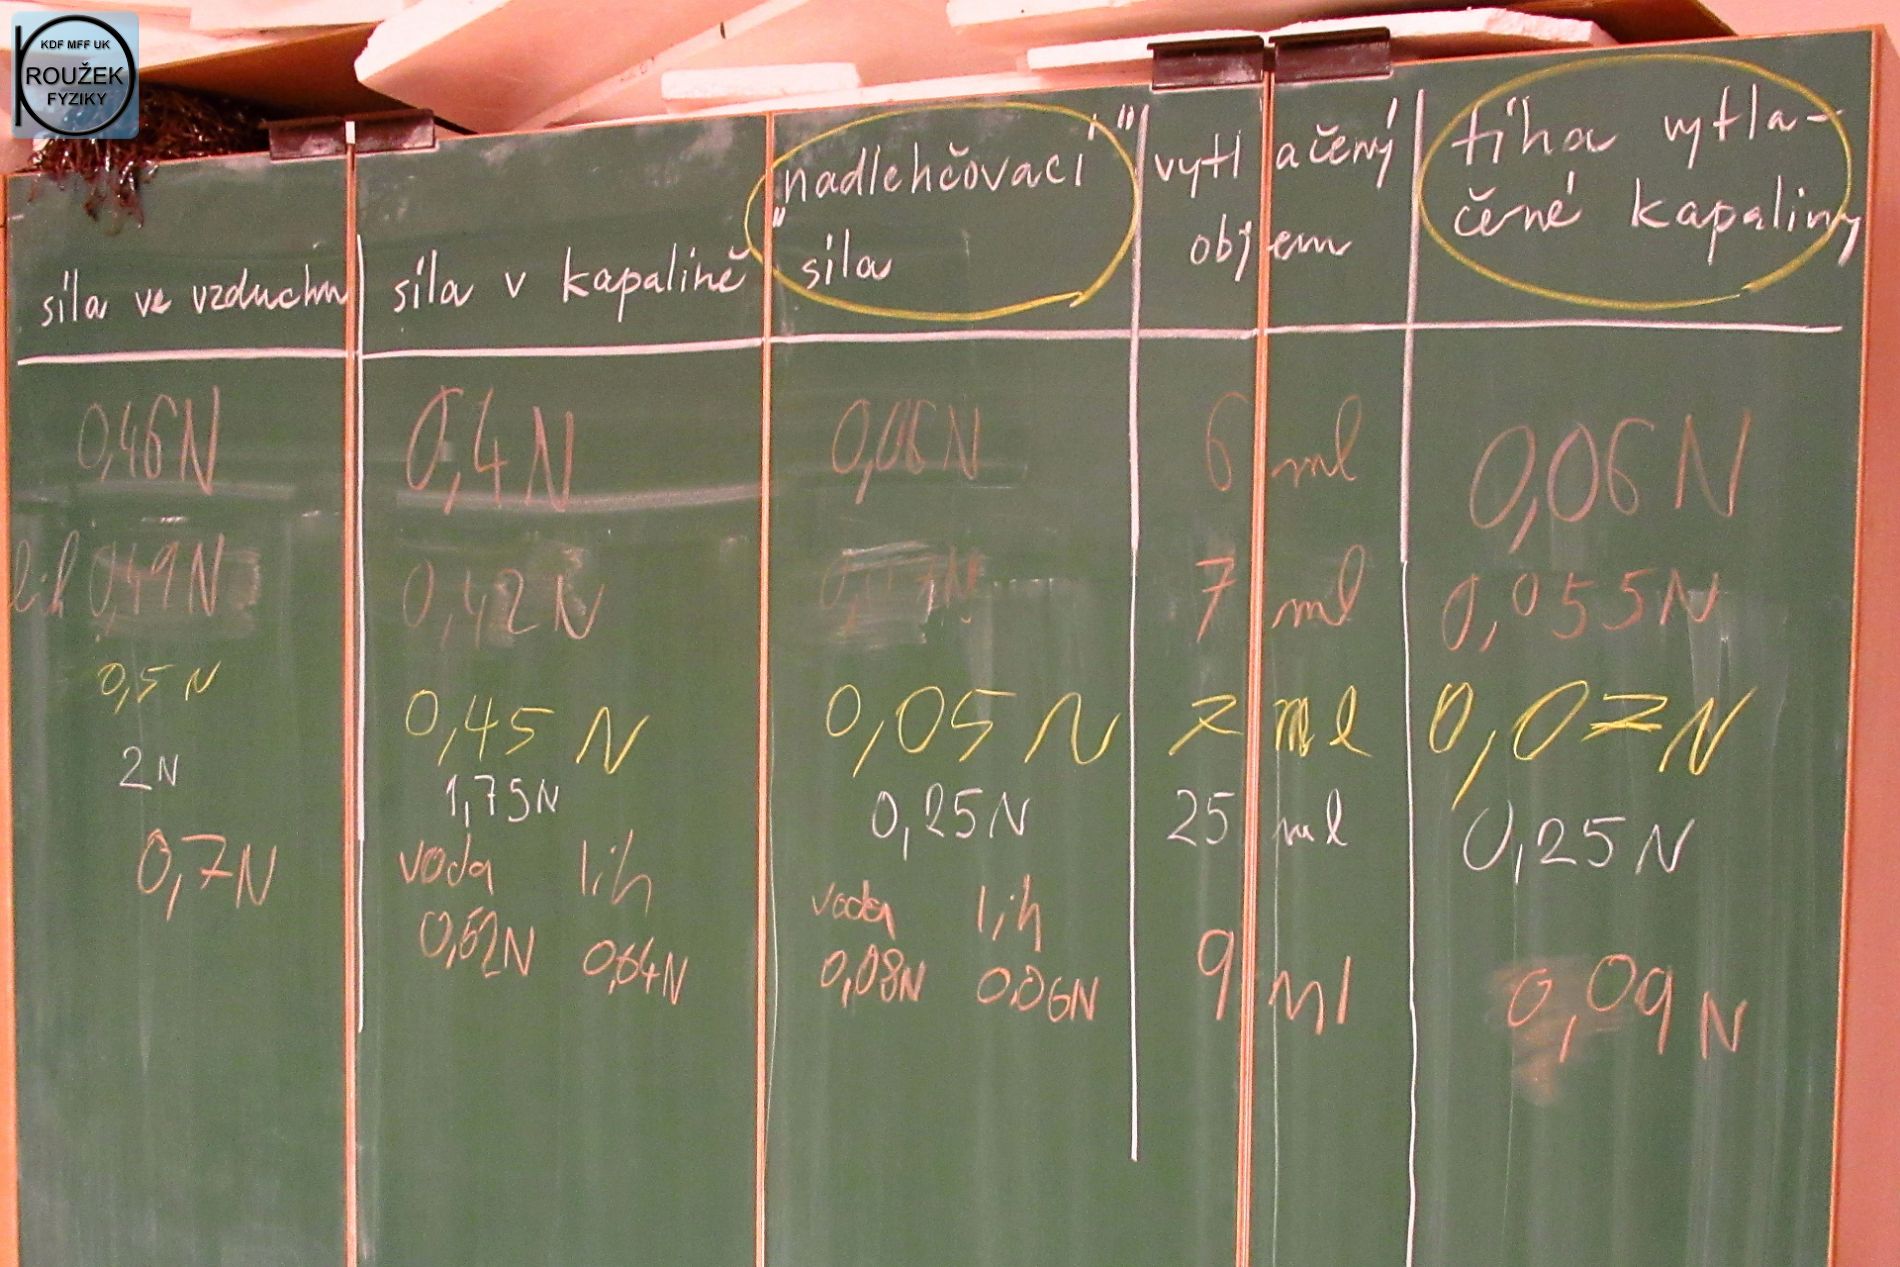 KDF MFF UK
ROUŽEK
FYZIKY
síla ve vzduchu
síla v kapalině
"nadlehčovací"
síla
vytlačený
objem
tíha vytla-
čené kapaliny
0,46N 0,4N 0,06N 6 ml 0,06N
líh 0,49N 0,42N 7 ml 0,055N
0,5N 0,45N 0,05N 7 ml 0,07N
2N 1,75N 0,25N 25 ml 0,25N
voda líh
voda líh
0,7N 0,62N 0,64N 0,08N 0,06N 9 ml 0,09N